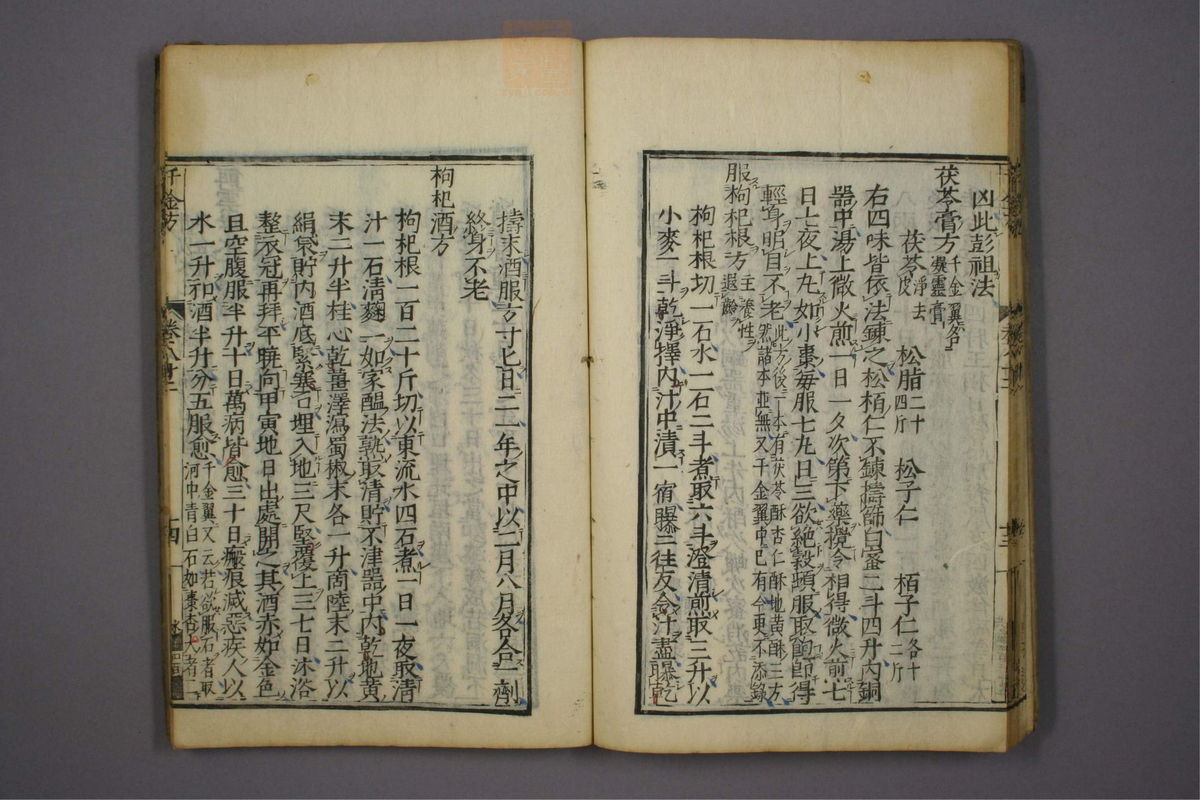 凶此彭祖法
茯苓膏方 千金翼名凝靈膏
茯苓 淨去皮 松脂 二十四斤 松子仁 栢子仁 各十二斤
右四味皆依法鍊之松栢仁不鍊擣篩白蜜二斗四升內銅
器中湯上微火煎一日一夕次第下藥攪令相得微火煎七
日七夜止丸如小棗每服七丸日三欲絶穀頓服取飽即得
輕身明目不老 此方後一本有茯苓酥杏仁酥地黄酥三方然諸本並無又千金翼中已有今更不添錄
服枸杞根方 主養性遐齡
枸杞根切一石水一石二斗煮取六斗澄清煎取三升以
小麥一斗乾淨擇內汁中漬一宿曝二往反令汁盡曝乾
擣末酒服方寸匕日二一年之中以二月八月各合一劑
終身不老
枸杞酒方
枸杞根一百二十斤切以東流水四石煮一日一夜取清
汁一石漬麴一如家醖法熟取清貯不津器中內乾地黄
末二升半桂心乾薑澤瀉蜀椒末各一升商陸末二升以
絹袋貯內酒底緊塞口埋入地三尺堅覆上三七日沐浴
整衣冠再拜平曉向甲寅地日出處開之其酒赤如金色
且空腹服半升十日萬病皆愈三十日瘢痕滅惡疾人以
水一升和酒半升分五服愈 千金翼又云若欲服石者取河中青白石如棗杏大者二
千金方
卷八十二
十四